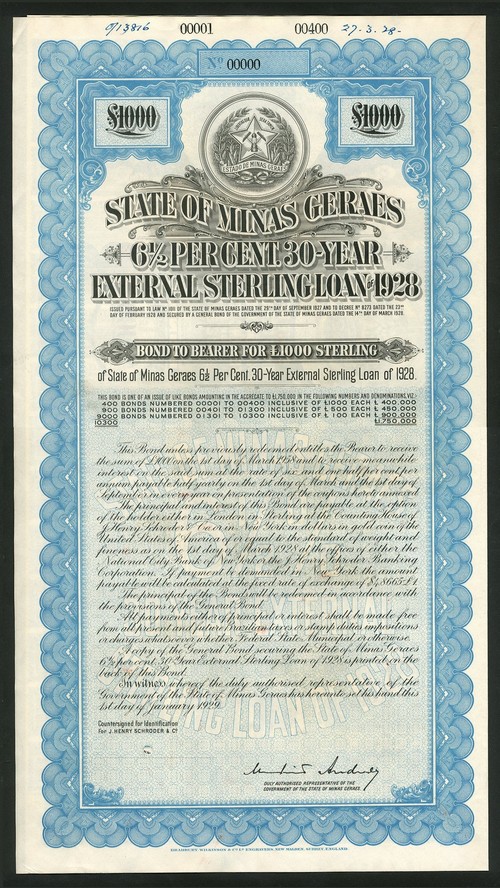 0/13816 00001 00400 27-3-28-
Nº 00000
£1000 £1000
ESTADO DE MINAS GERAES
STATE OF MINAS GERAES
6½ PER CENT. 30-YEAR
EXTERNAL STERLING LOAN OF 1928
ISSUED PURSUANT TO LAW Nº 1011 OF THE STATE OF MINAS GERAES DATED THE 29TH DAY OF SEPTEMBER 1927 AND TO DECREE Nº 8273 DATED THE 23RD
DAY OF FEBRUARY 1928 AND SECURED BY A GENERAL BOND OF THE GOVERNMENT OF THE STATE OF MINAS GERAES DATED THE 14TH DAY OF MARCH 1928.
BOND TO BEARER FOR £1000 STERLING
of State of Minas Geraes 6½ Per Cent. 30-Year External Sterling Loan of 1928.
THIS BOND IS ONE OF AN ISSUE OF LIKE BONDS AMOUNTING IN THE AGGREGATE TO £1,750,000 IN THE FOLLOWING NUMBERS AND DENOMINATIONS, VIZ:
400 BONDS NUMBERED 00001 TO 00400 INCLUSIVE OF £1000 EACH £ 400,000
900 BONDS NUMBERED 00401 TO 01300 INCLUSIVE OF £ 500 EACH £ 450,000
9000 BONDS NUMBERED 01301 TO 10300 INCLUSIVE OF £ 100 EACH £ 900,000
10300 £1,750,000
This Bond unless previously redeemed entitles the Bearer to receive
the sum of £1,000 on the 1st day of March 1958 and to receive meanwhile
interest on the said sum at the rate of six and one half per cent per
annum payable half yearly on the 1st day of March and the 1st day of
September in every year on presentation of the coupons hereto annexed.
The principal and interest of this Bond are payable at the option
of the holder either in London in Sterling at the Counting House of
J. Henry Schroder & Co. or in New York in dollars in gold coin of the
United States of America of or equal to the standard of weight and
fineness as on the 1st day of March 1928 at the offices of either the
National City Bank of New York or the J. Henry Schroder Banking
Corporation. If payment is demanded in New York the amount
payable will be calculated at the fixed rate of exchange of $4.8665=£1.
The principal of the Bonds will be redeemed in accordance with
the provisions of the General Bond.
All payments either of principal or interest shall be made free
from all present and future Brazilian taxes or stamp duties impositions
or charges whatsoever whether Federal State Municipal or otherwise.
A copy of the General Bond securing the State of Minas Geraes
6½ per cent. 30 Year External Sterling Loan of 1928 is printed on the
back of this Bond.
In witness whereof the duly authorised representative of the
Government of the State of Minas Geraes has hereunto set his hand this
1st day of January 1929.
Countersigned for Identification
For J. HENRY SCHRODER & Cº
DULY AUTHORISED REPRESENTATIVE OF THE
GOVERNMENT OF THE STATE OF MINAS GERAES.
BRADBURY, WILKINSON & Cº Lᴰ ENGRAVERS, NEW MALDEN, SURREY, ENGLAND.